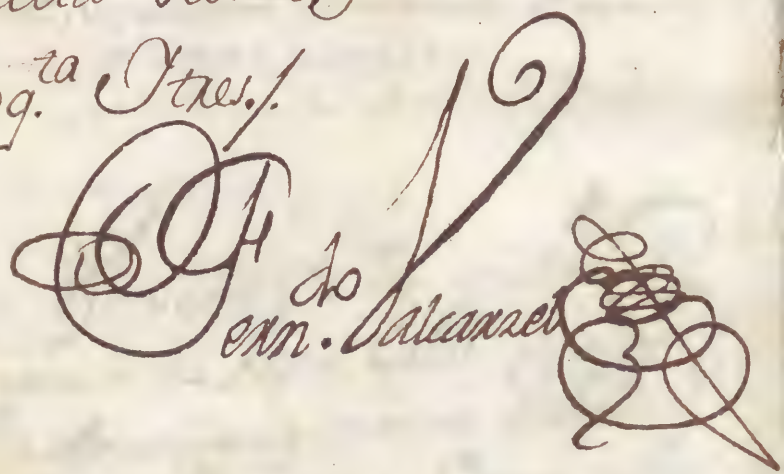 q.ta y tres./.
Fern.do Valcarzel